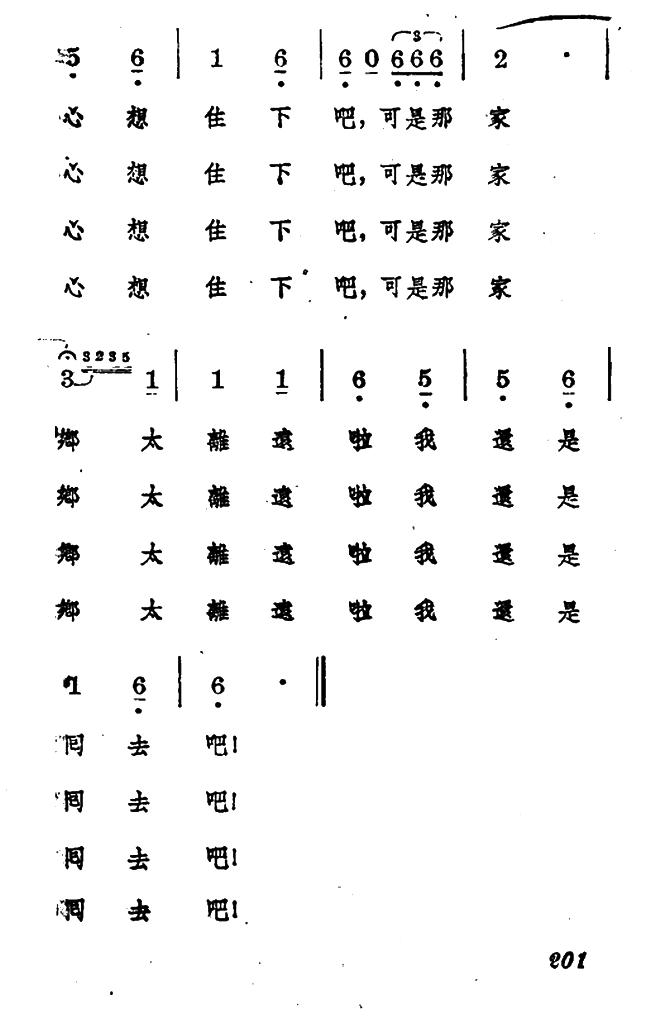 5 6 | 1 6 | 6 0 666 | 2 · |
3
心 想 住 下 吧, 可是那 家
心 想 住 下 吧, 可是那 家
心 想 住 下 吧, 可是那 家
心 想 住 下 吧, 可是那 家
3 3235 1 | 1 1 | 6 5 | 5 6 |
鄉 太 離 遠 啦 我 還 是
鄉 太 離 遠 啦 我 還 是
鄉 太 離 遠 啦 我 還 是
鄉 太 離 遠 啦 我 還 是
1 6 | 6 · ‖
囘 去 吧!
囘 去 吧!
囘 去 吧!
囘 去 吧!
201